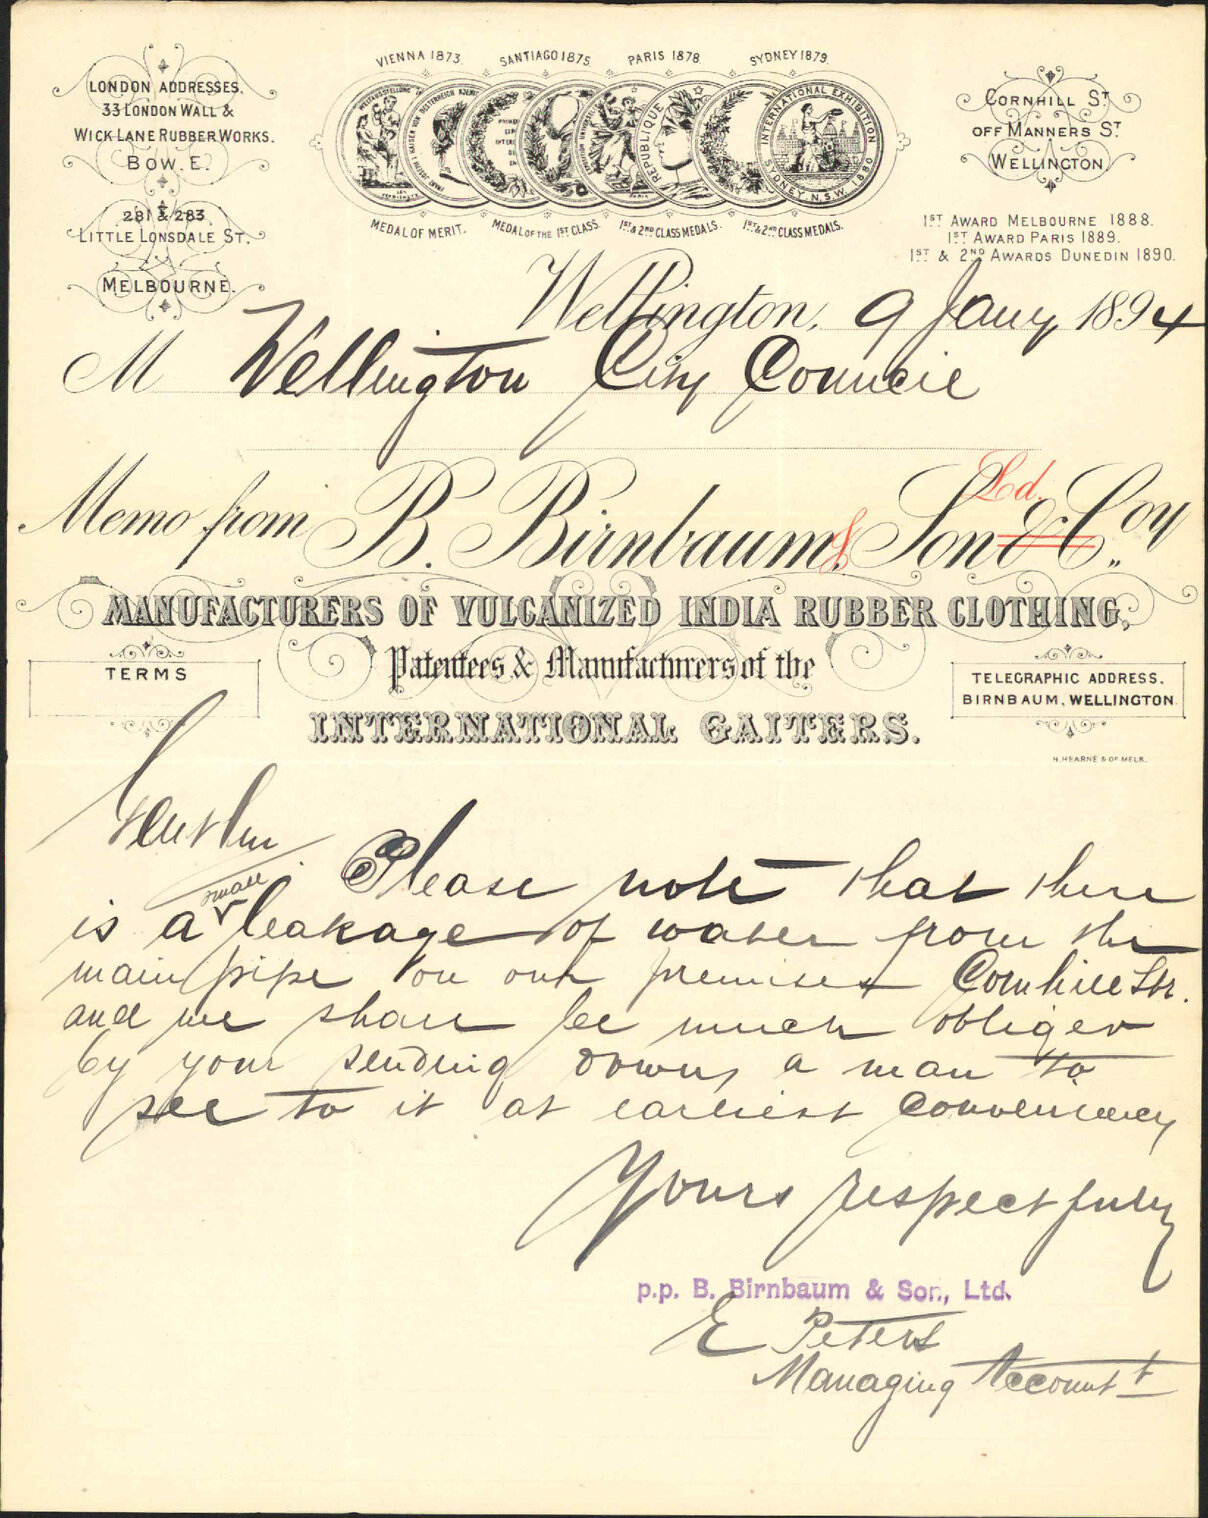 LONDON ADDRESSES.
33 LONDON WALL &
WICK LANE RUBBER WORKS.
BOW. E.
281 & 283
LITTLE LONSDALE ST.
MELBOURNE.
VIENNA 1873.
SANTIAGO 1875.
PARIS 1878.
SYDNEY 1879.
REPUBLIQUE
INTERNATIONAL EXHIBITION
SYDNEY N.S.W. 1880
MEDAL OF MERIT.
MEDAL OF THE 1ST CLASS.
1ST & 2ND CLASS MEDALS.
1ST & 2ND CLASS MEDALS.
CORNHILL ST
OFF MANNERS ST.
WELLINGTON
1ST AWARD MELBOURNE 1888.
1ST AWARD PARIS 1889.
1ST & 2ND AWARDS DUNEDIN 1890.
Wellington, 9 Jany 1894
M Wellington City Council
Memo from B. Birnbaum & Son Ld. & Coy
MANUFACTURERS OF VULCANIZED INDIA RUBBER CLOTHING,
Patentees & Manufacturers of the
INTERNATIONAL GAITERS.
TERMS
TELEGRAPHIC ADDRESS.
BIRNBAUM, WELLINGTON
H. HEARNE & CO MELB.
Gentlm
Please note that there
is a small leakage of water from the
main pipe on our premises Cornhill Str.
and we shall be much obliged
by your sending down a man to
see to it at earliest conveniency
Yours respectfully
p.p. B. Birnbaum & Son, Ltd.
E Peters
Managing Accountt